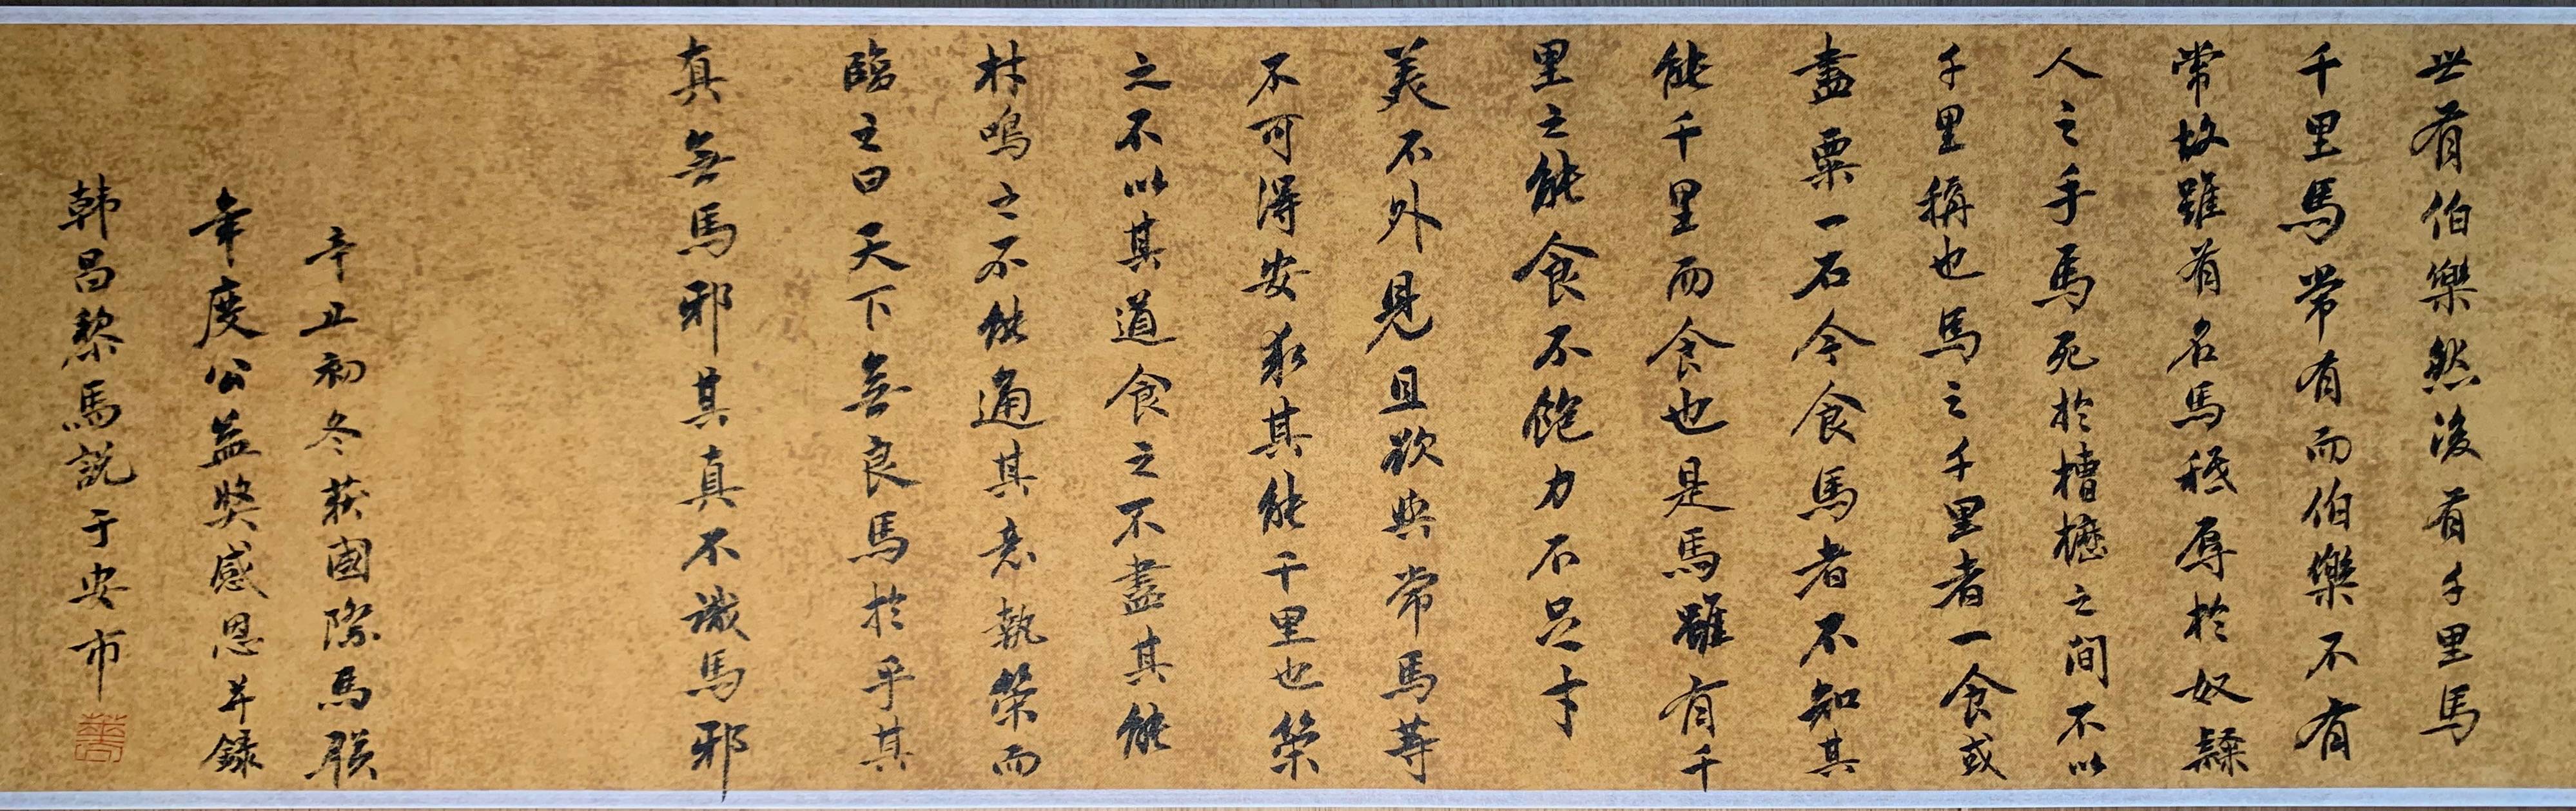 世有伯樂然後有千里馬
千里馬常有而伯樂不有
常故雖有名馬秪辱於奴隸
人之手馬死於槽櫪之間不以
千里稱也馬之千里者一食或
盡粟一石今食馬者不知其
能千里而食也是馬雖有千
里之能食不飽力不足才
美不外見且欲與常馬等
不可得安求其能千里也策
之不以其道食之不盡其能
材鳴之不能通其意執策而
臨之曰天下無良馬於乎其
真無馬邪其真不識馬邪
辛丑初冬获國際馬联
年度公益奖感恩并録
韩昌黎馬説于安市